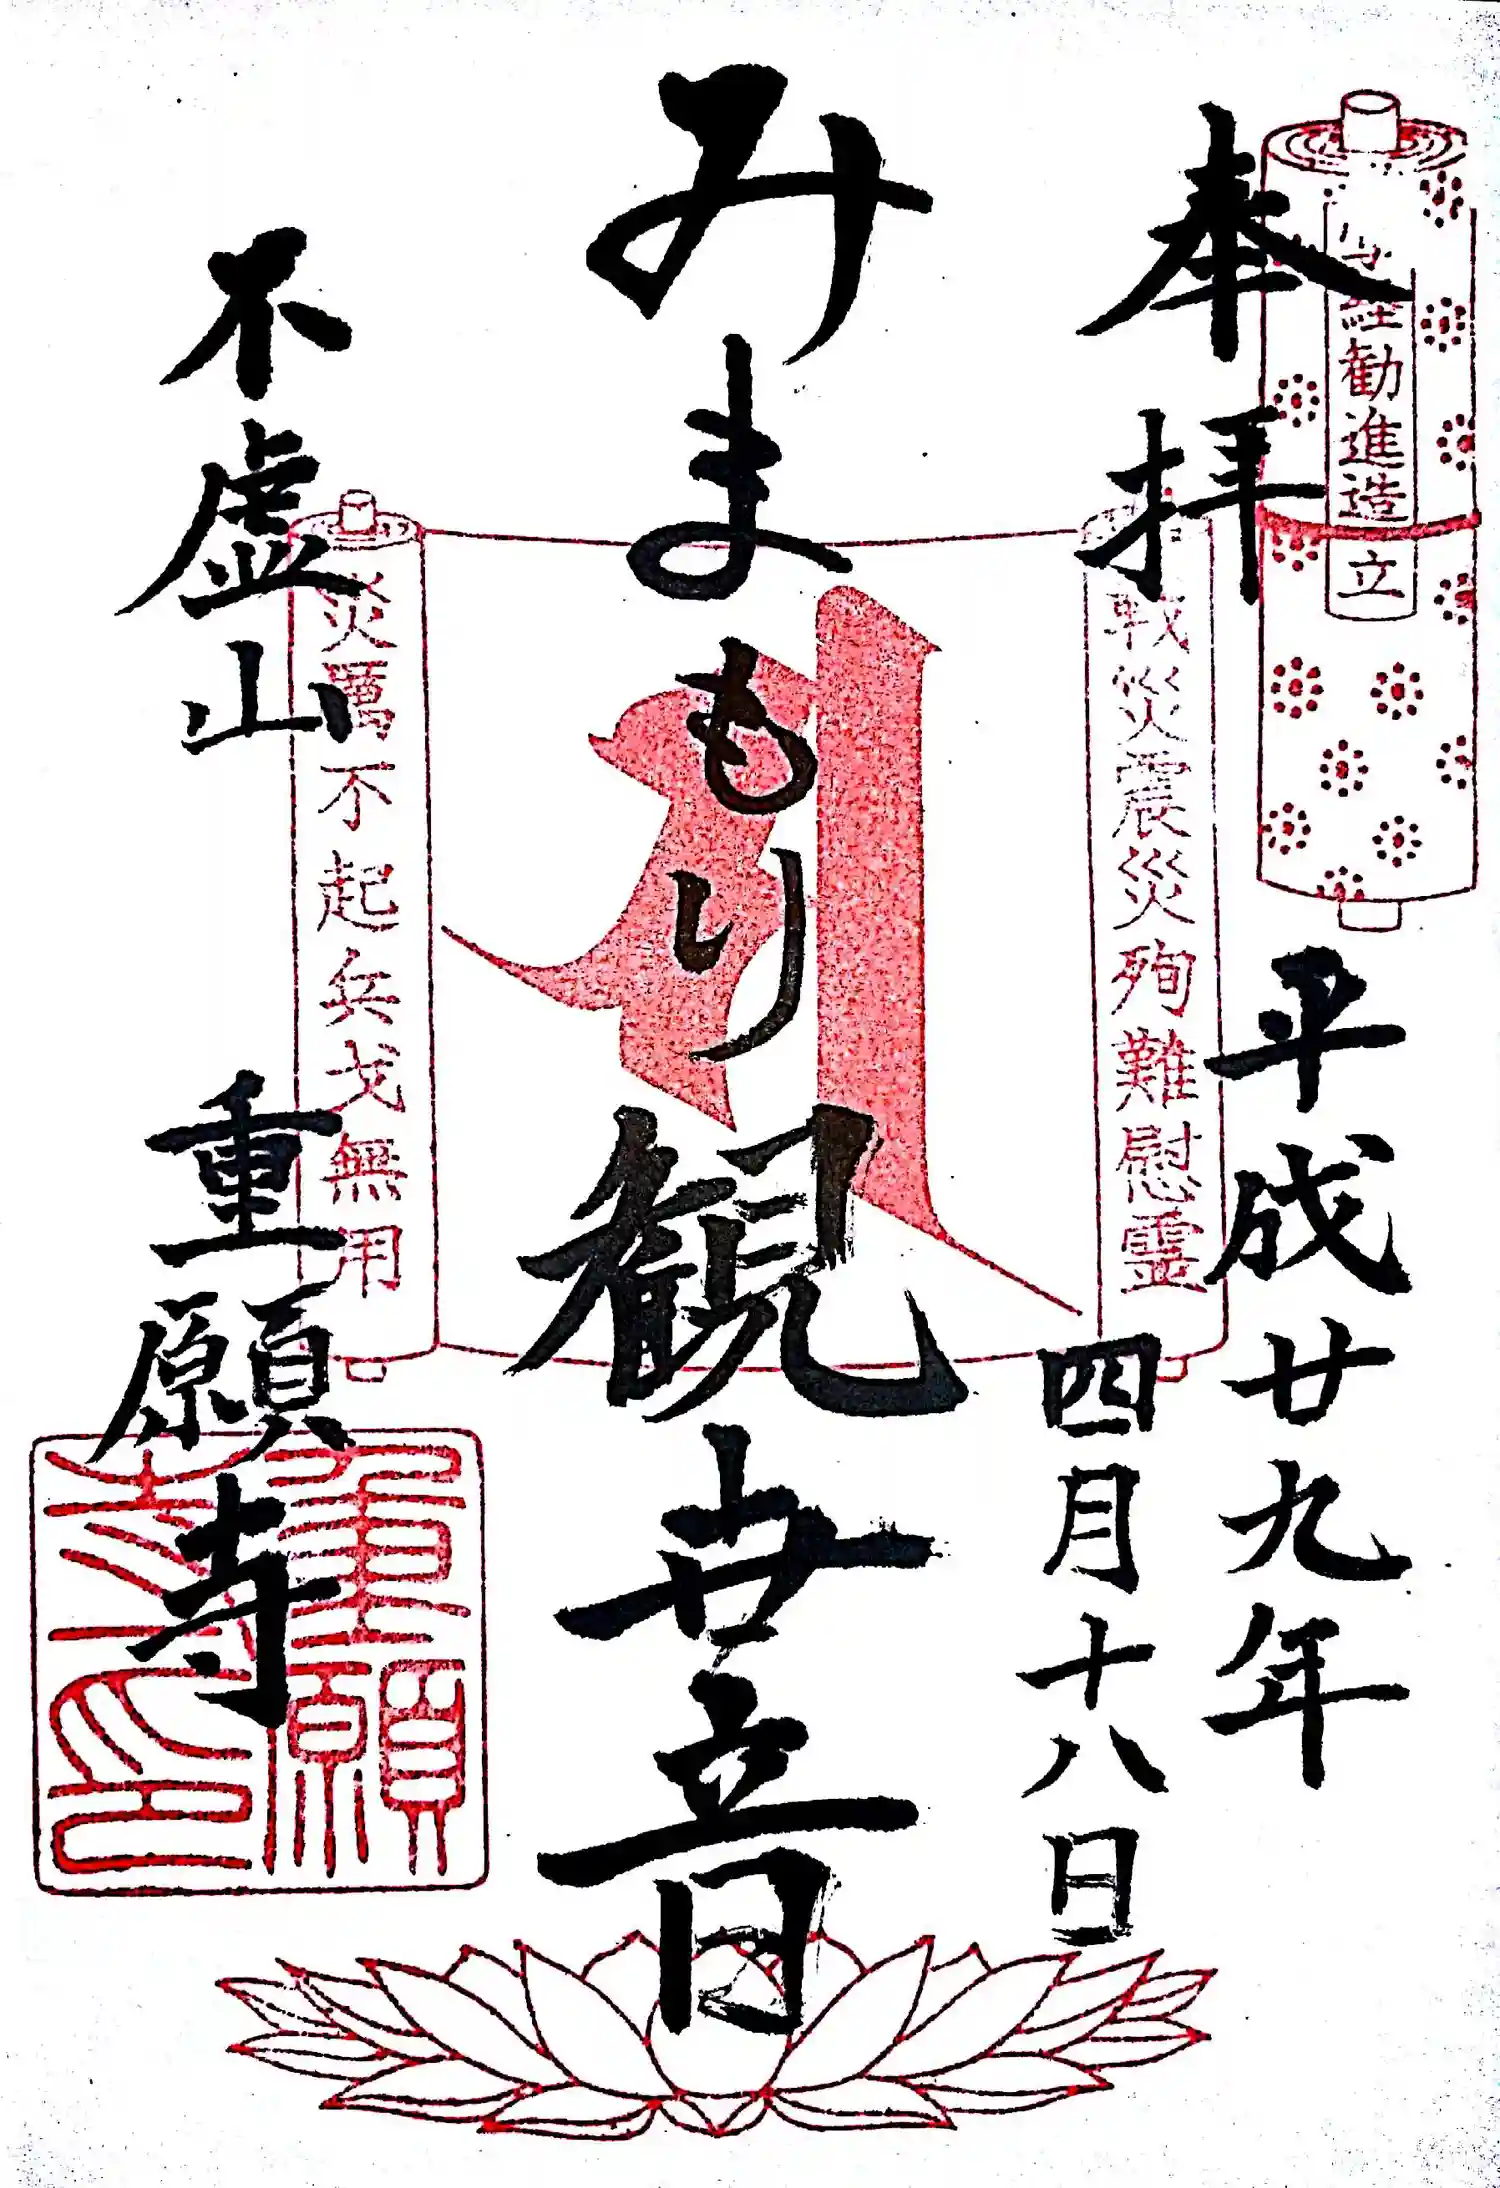 奉拝
平成廿九年
四月十八日
経勧進造立
戦災震災殉難慰霊
みまもり観世音
災厲不起兵戈無用
不虚山
重願寺
重願
寺印